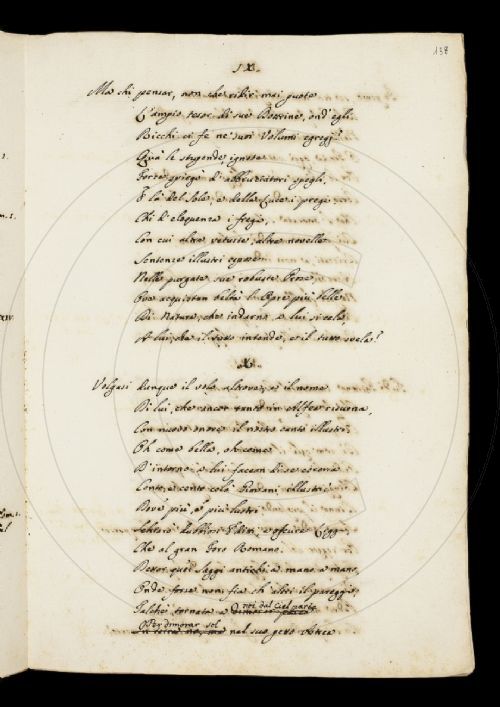 138
IX.
Ma chi pensar, non che ridir mai puote
L'ampio tesor di sue Dottrine, ond'egli
Ricchi ci fe ne' suoi Volumi egregj?
Quà le stupende, ignote
Forze spiegò d'abbruciatori spegli,
E là del Sole, e della Luce i pregi
Chi d'eloquenza i fregi,
Con cui altre vetuste, altre novelle
Sentenze illustri espose
Nelle purgate sue robuste Prose,
Ove acquistan beltà le Opre più belle
Di Natura, che indarno a lui si cela,
A lui, che il tutto intende, e il tutto svela?
X.
Volgasi dunque il volo altrove, e il nome
Di lui, che ancor tanto in risuona,
Con nuovo onore il nostro canto illustri.
Oh come bella, oh come
D'intorno a lui facean di se corona
Cento, e cento colà illustri
Dove più, e più lustri
dubbiosi e oscure Leggi
Che al gran Foro Romano
quei Saggi antichi a mano a mano,
Onde forse non fia ch'altri il pareggi
Talche tornata a noi dal Ciel parte
Per dimorar sol
nel suo petto Astrea